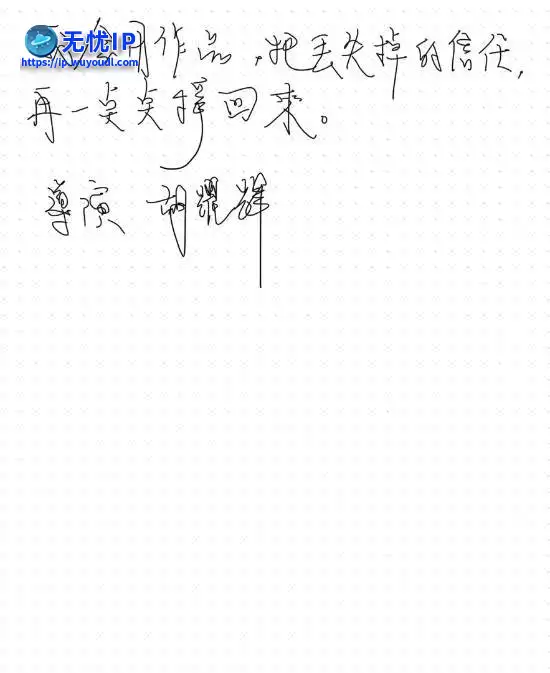 无忧IP
https://ip.wuyoudl.com
用作品，把丢失掉的信任，
再一点点挣回来。
導演 胡耀輝